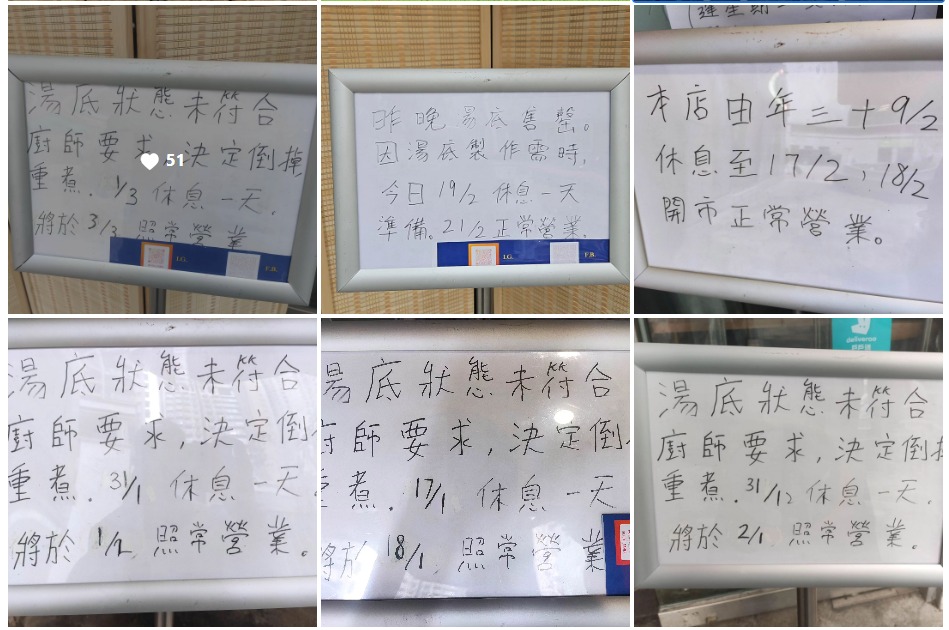 湯底狀態未符合
廚師要求,決定倒掉
重煮. 1/3 休息一天.
將於 3/3 照常營業
51
I.G.
F.B.
昨晚湯底售罄。
因湯底製作需時,
今日 19/2 休息一天
準備。21/2 正常營業.
I.G.
F.B.
本店由年三十 9/2
休息至 17/2, 18/2
開市正常營業。
湯底狀態未符合
廚師要求,決定倒
重煮. 31/1 休息一天.
將於 1/2 照常營業。
湯底狀態未符合
廚師要求,決定倒
煮. 17/1 休息一天
將於 18/1 照常營業
deliveroo
湯底狀態未符合
廚師要求,決定倒
重煮. 31/12 休息一天.
將於 2/1 照常營業。